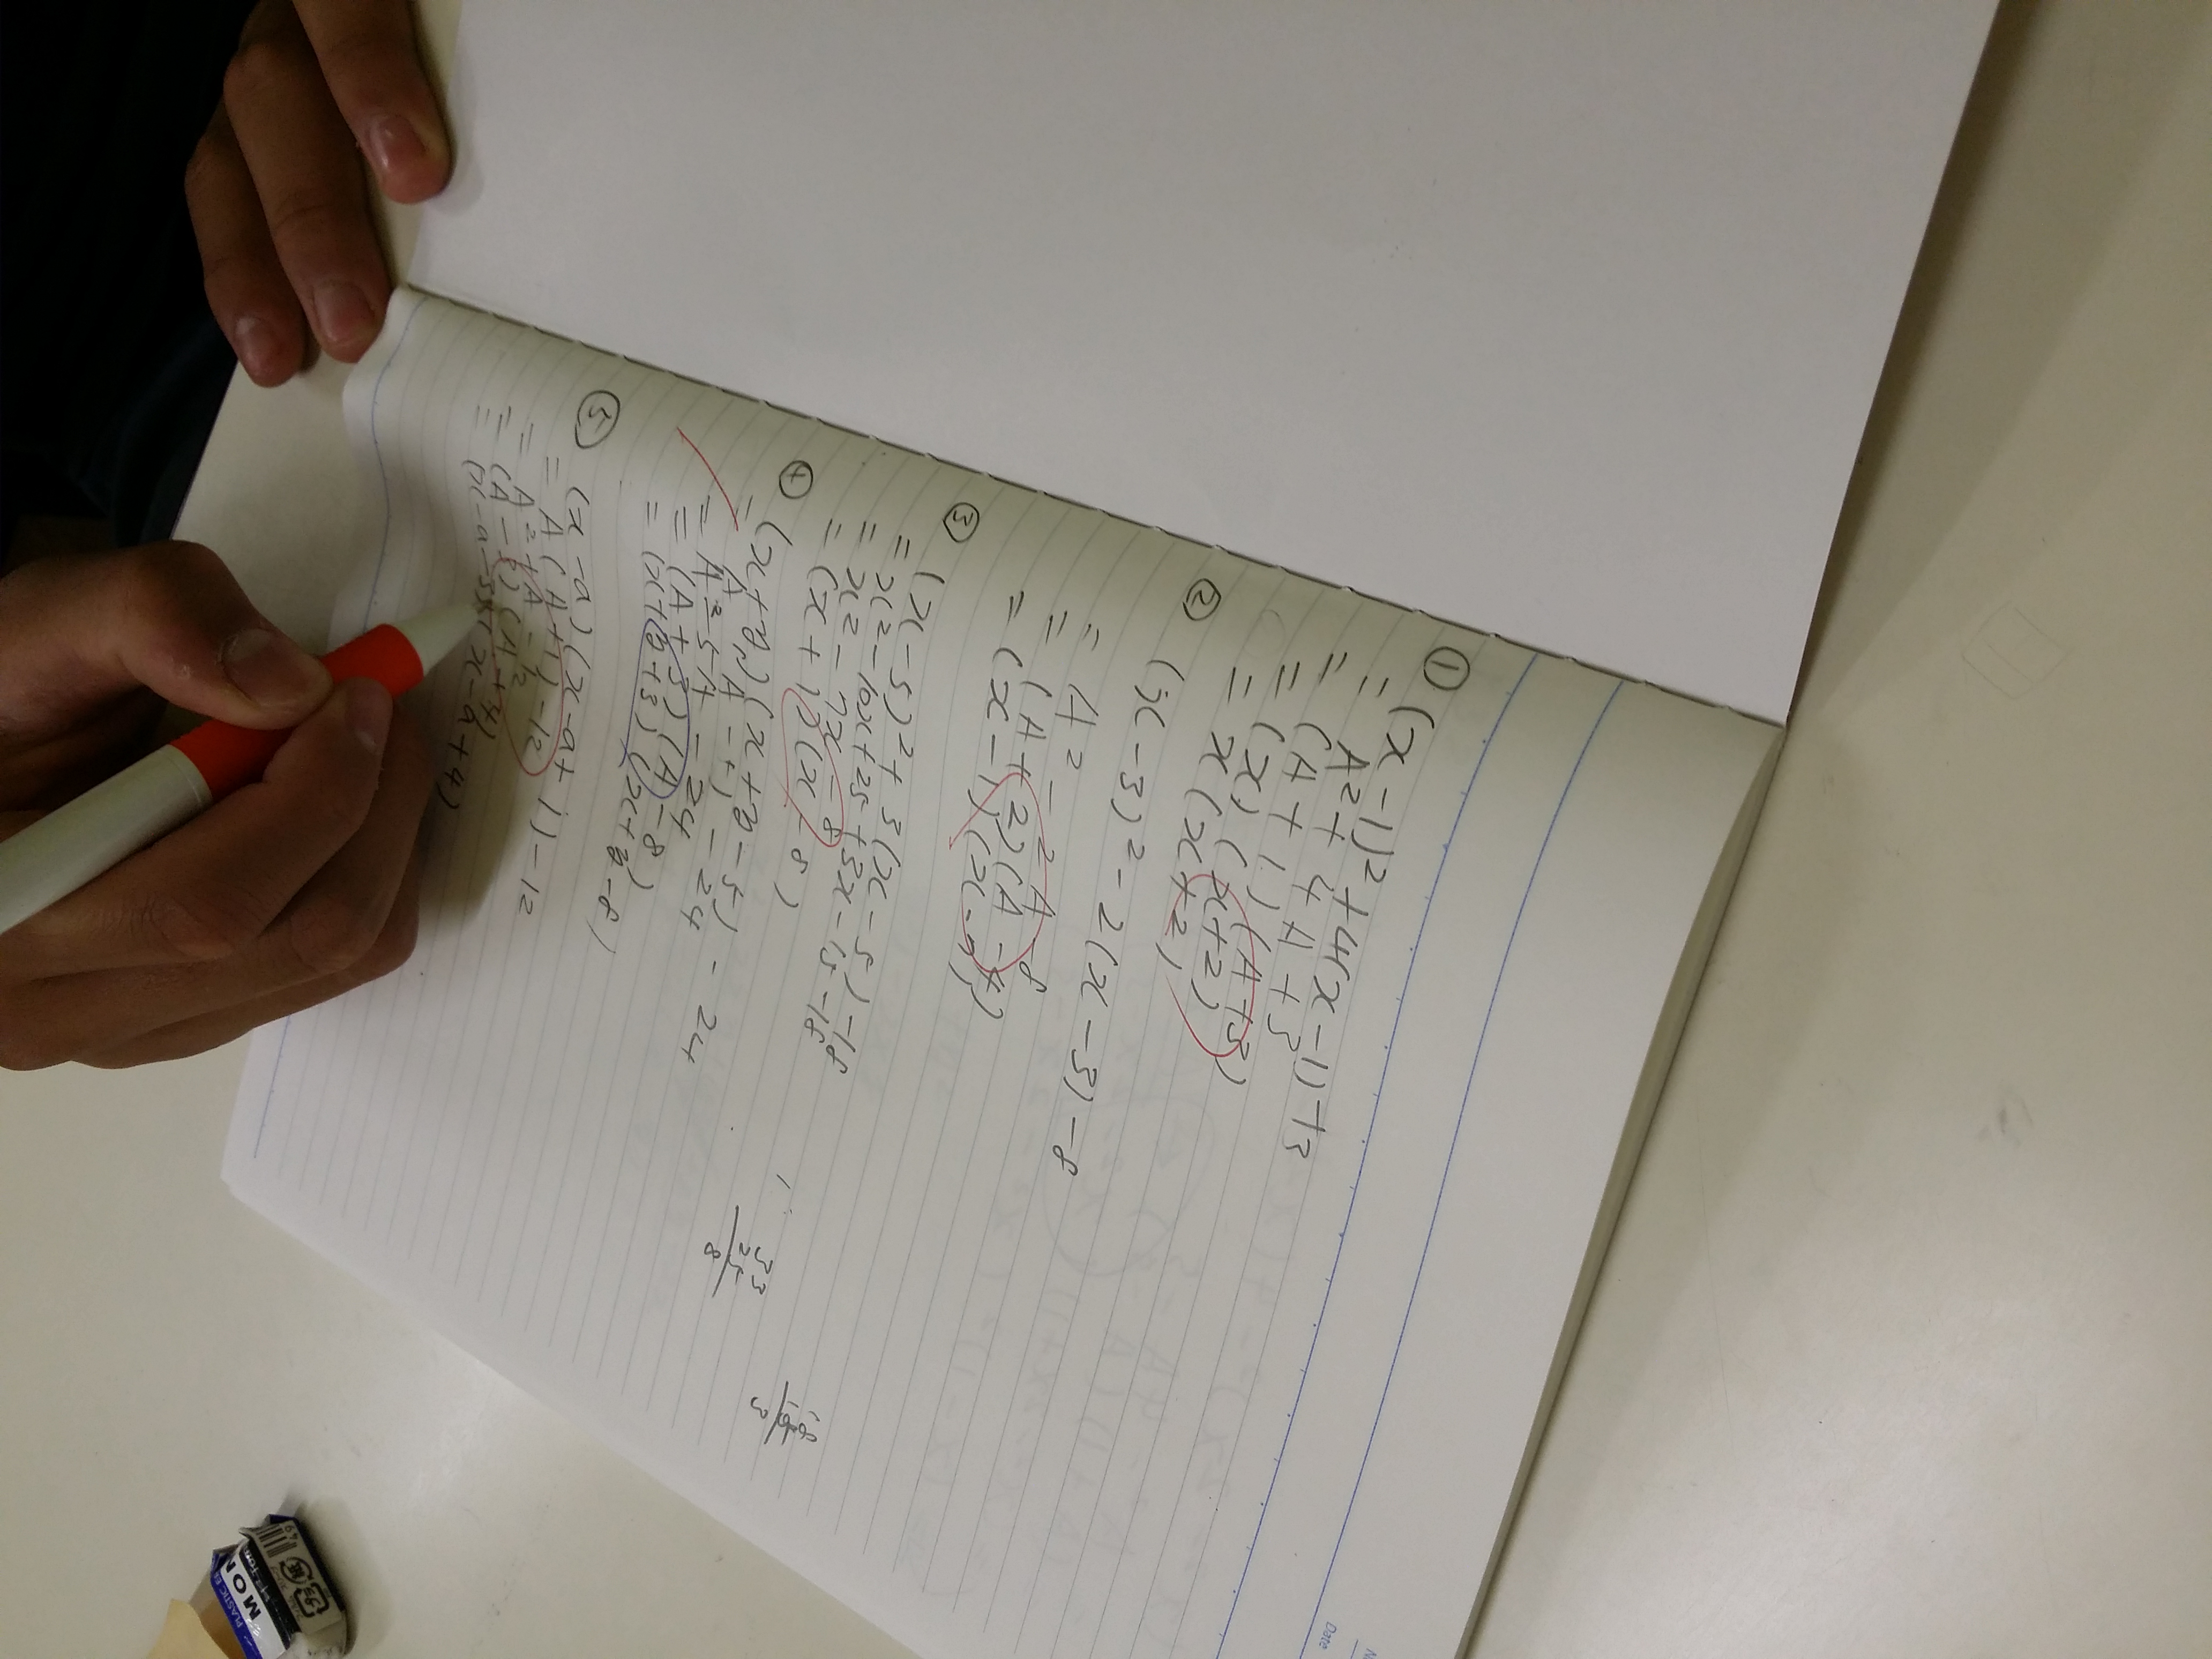 ① (x-1)²+4(x-1)+3
= A²+4A+3
= (A+1)(A+3)
= (x)(x+2)
= x(x+2)
② (x-3)²-2(x-3)-8
= A²-2A-8
= (A+2)(A-4)
= (x-1)(x-7)
③ (x-5)²+3(x-5)-18
= x²-10x+25+3x-15-18
= x²-7x-8
= (x+1)(x-8)
④ (x+y)(x+y-5)-24
= A(A-5)-24
= A²-5A-24
= (A+3)(A-8)
= (x+y+3)(x+y-8)
⑤ (x-a)(x-a+1)-12
= A(A+1)-12
= A²+A-12
= (A-3)(A+4)
= (x-a-3)(x-a+4)
33
25
8
18
15
3
Date
MON
PLASTIC